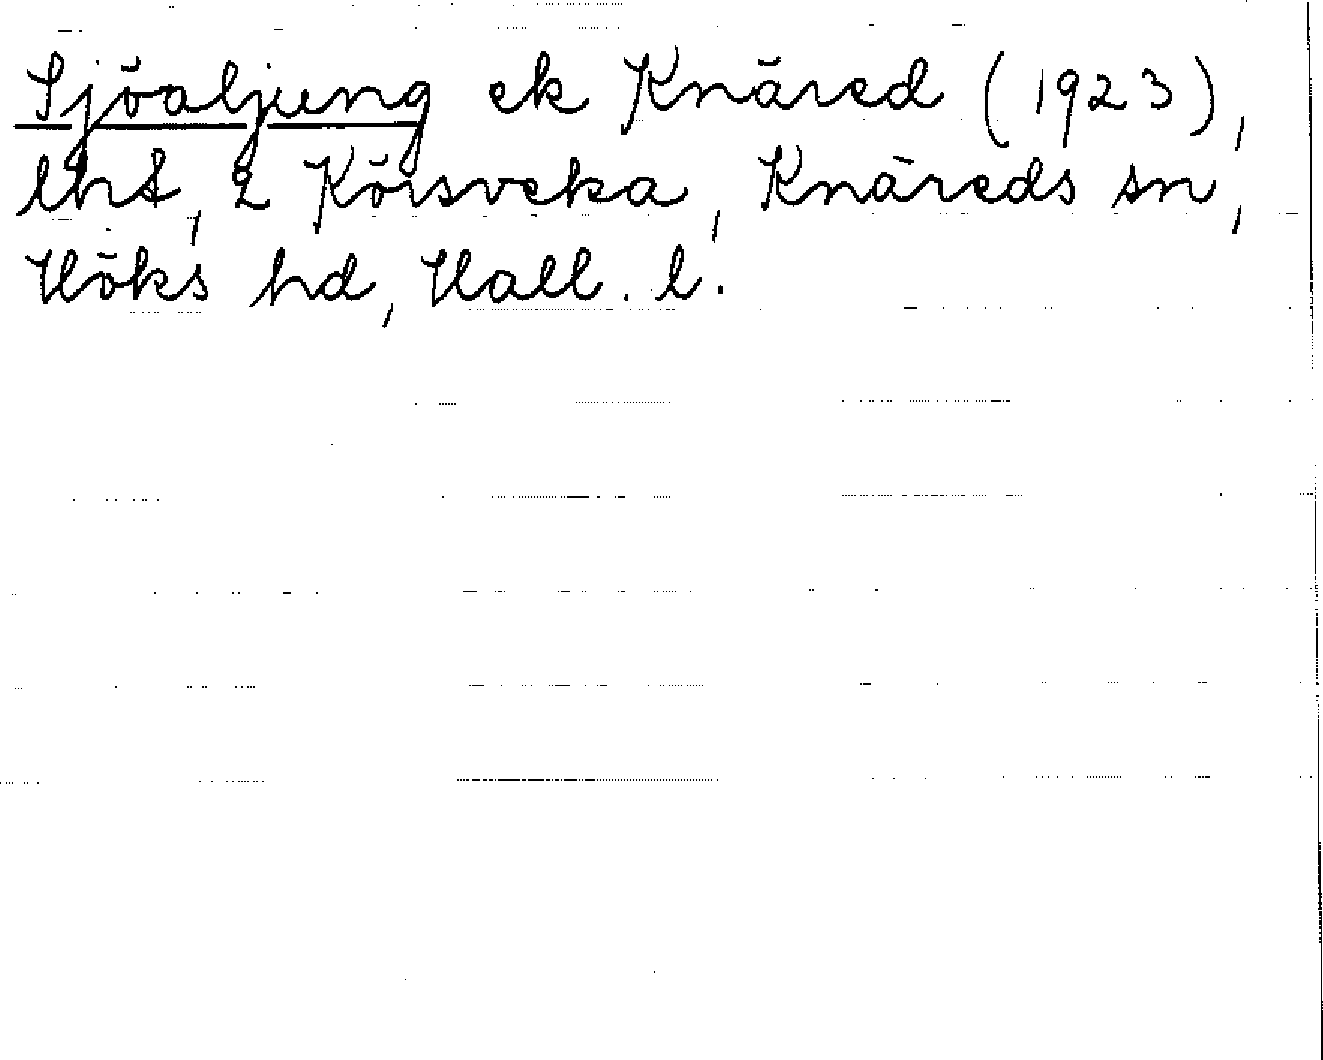 Sjöaljung ek Knäred (1923),
lht, 2 Körsveka, Knäreds sn,
Höks hd, Hall. l.